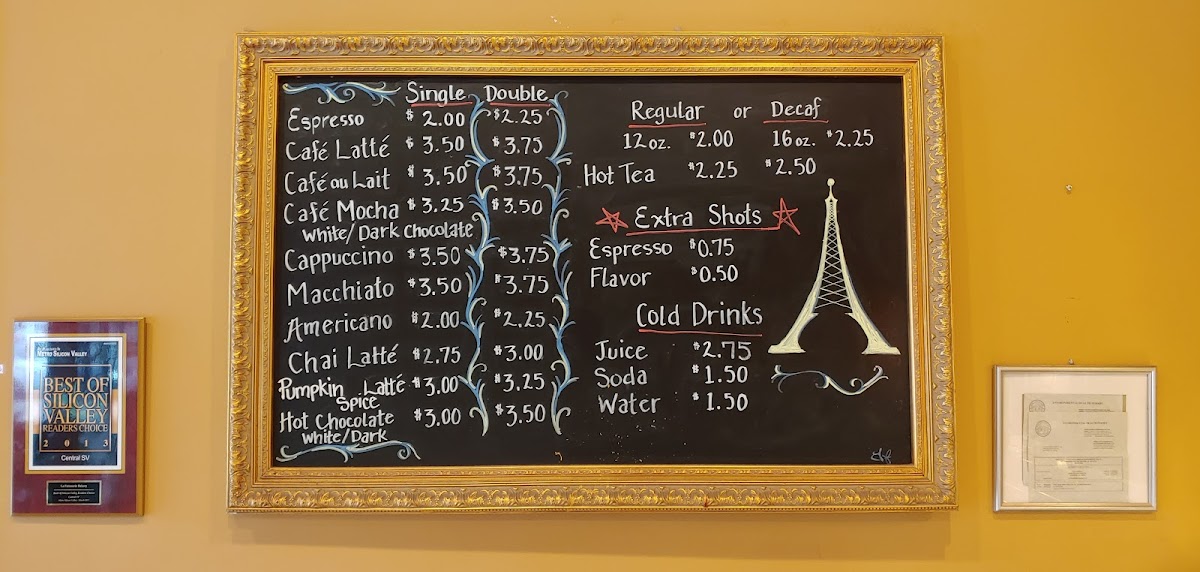 Single Double
Espresso $2.00 $2.25
Café Latté $3.50 $3.75
Café au Lait $3.50 $3.75
Café Mocha $3.25 $3.50
White/Dark Chocolate
Cappuccino $3.50 $3.75
Macchiato $3.50 $3.75
Americano $2.00 $2.25
Chai Latté $2.75 $3.00
Pumpkin Latté $3.00 $3.25
Spice
Hot Chocolate $3.00 $3.50
White/Dark
Regular or Decaf
12oz. $2.00 16oz. $2.25
Hot Tea $2.25 $2.50
Extra Shots
Espresso $0.75
Flavor $0.50
Cold Drinks
Juice $2.75
Soda $1.50
Water $1.50
METRO SILICON VALLEY
BEST OF
SILICON
VALLEY
READERS CHOICE
2013
Central SV